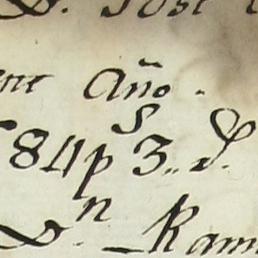 D. Jose
nte Año.
84 ps 3.. d.
Dn. Ram